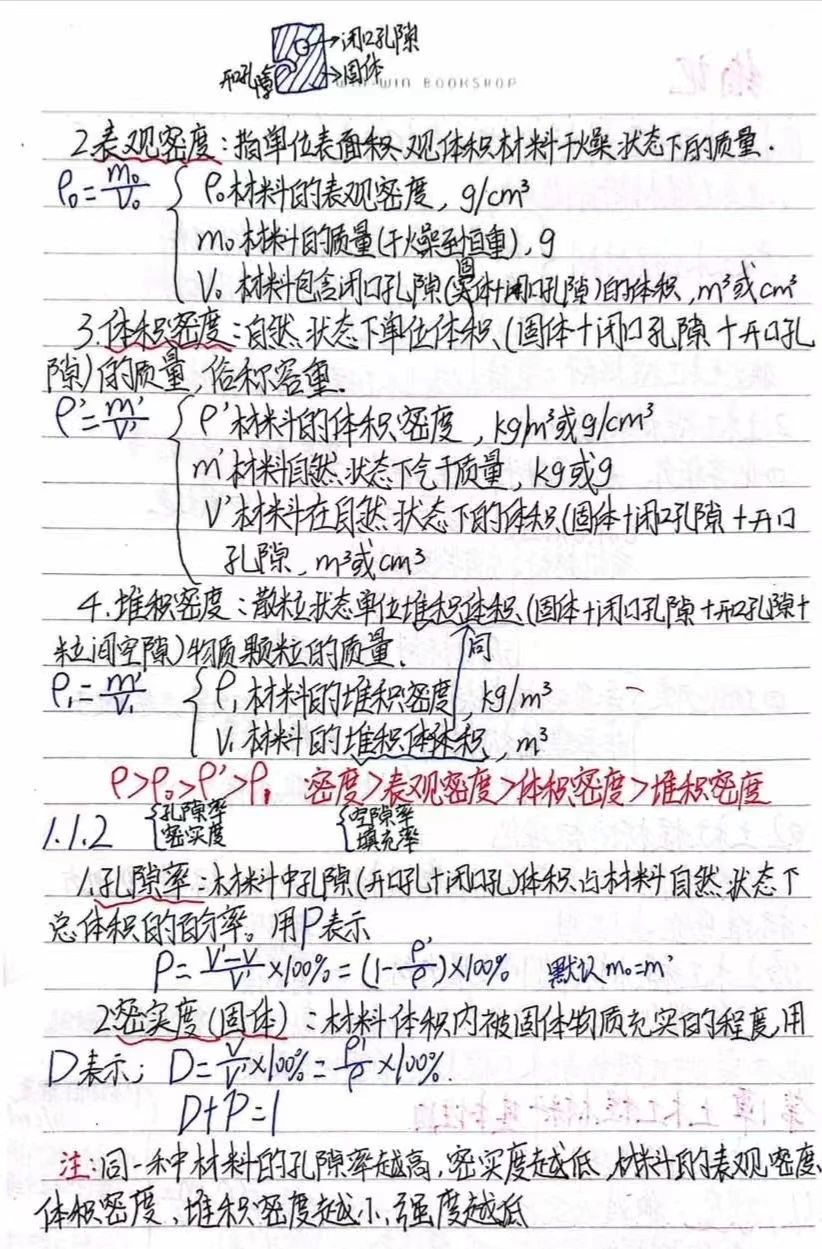 闭口孔隙
开口孔隙 固体
WIN-WIN BOOKSHOP
2.表观密度：指单位表面积观体积材料干燥状态下的质量.
ρ₀=m₀/V₀ { ρ₀材料的表观密度，g/cm³
m₀材料的质量(干燥至恒重)，g
V₀ 材料包含闭口孔隙(固体+闭口孔隙)的体积，m³或cm³
3.体积密度：自然状态下单位体积(固体+闭口孔隙+开口孔
隙)的质量，俗称容重.
ρ'=m'/V' { ρ'材料的体积密度，kg/m³或g/cm³
m'材料自然状态下气干质量，kg或g
V'材料在自然状态下的体积(固体+闭口孔隙+开口
孔隙，m³或cm³
4.堆积密度：散粒状态单位堆积体积(固体+闭口孔隙+开口孔隙+
粒间空隙)物质颗粒的质量. 同
ρ₁=m'/V₁ { ρ₁材料的堆积密度，kg/m³
V₁材料的堆积体积，m³
ρ>ρ₀>ρ'>ρ₁ 密度>表观密度>体积密度>堆积密度
1.1.2 {孔隙率 密实度 {空隙率 填充率
1.孔隙率：材料中孔隙(开口孔+闭口孔)体积占材料自然状态下
总体积的百分率。用P表示
P=V'-V/V'×100%=(1-ρ'/ρ)×100% 默认m₀=m'
2.密实度(固体)：材料体积内被固体物质充实的程度，用
D表示；D=V/V'×100%=ρ'/ρ×100%.
D+P=1
注:同一种材料的孔隙率越高，密实度越低，材料的表观密度、
体积密度、堆积密度越小，强度越低